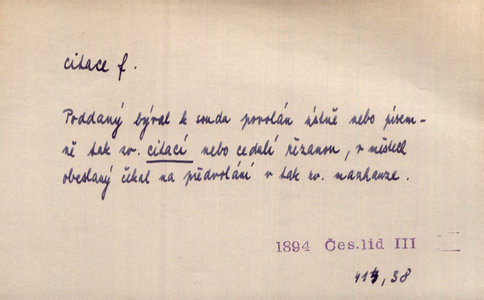 citace f.
Poddaný býval k soudu povolán ústně nebo písem-
ně tak zv. citací nebo cedulí řezanou, v městech
obeslaný čekal na předvolání v tak zv. mazhauze.
1894 Čes.lid III
413, 38